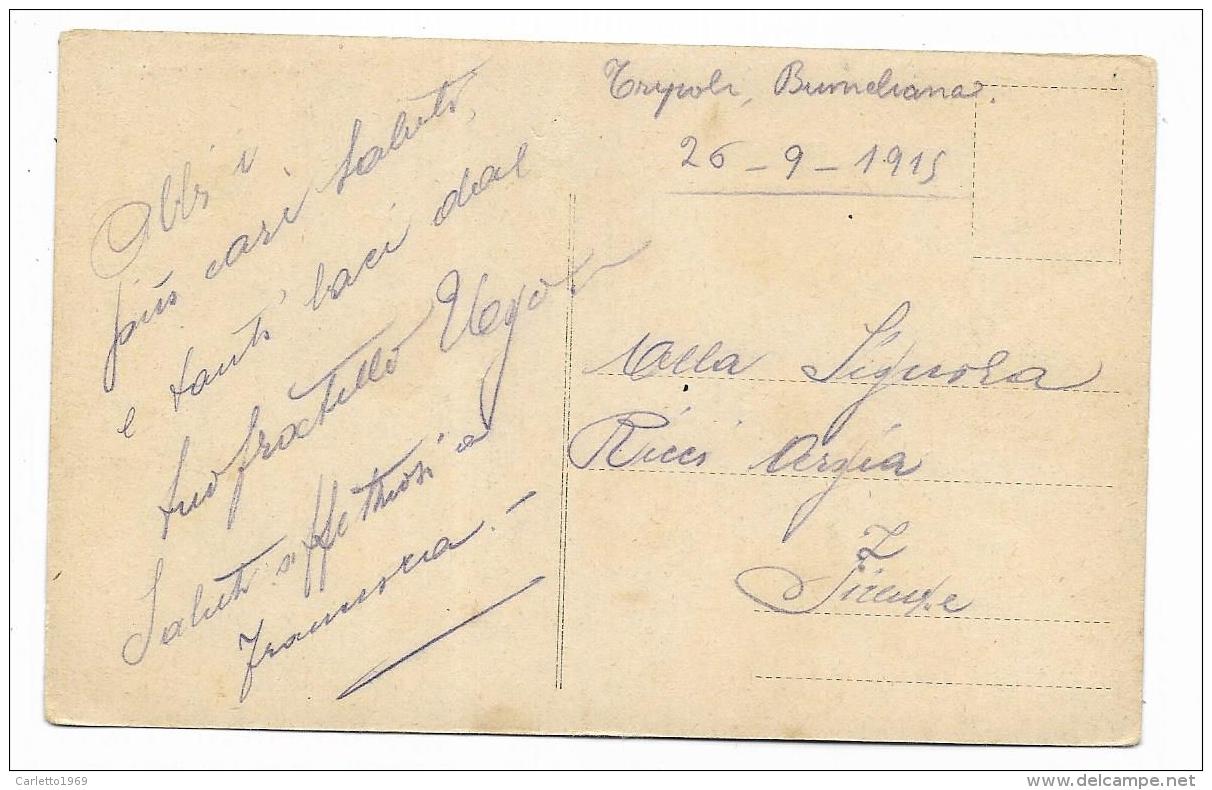 Tripoli, Bumeliana.
26-9-1915
Abbi i
più cari saluti,
e tanti baci dal
tuo fratello Ugo
Saluti affettuosi a
Alla Signora
Ricci Argia
Firenze
Carletto1969
delcampe.net